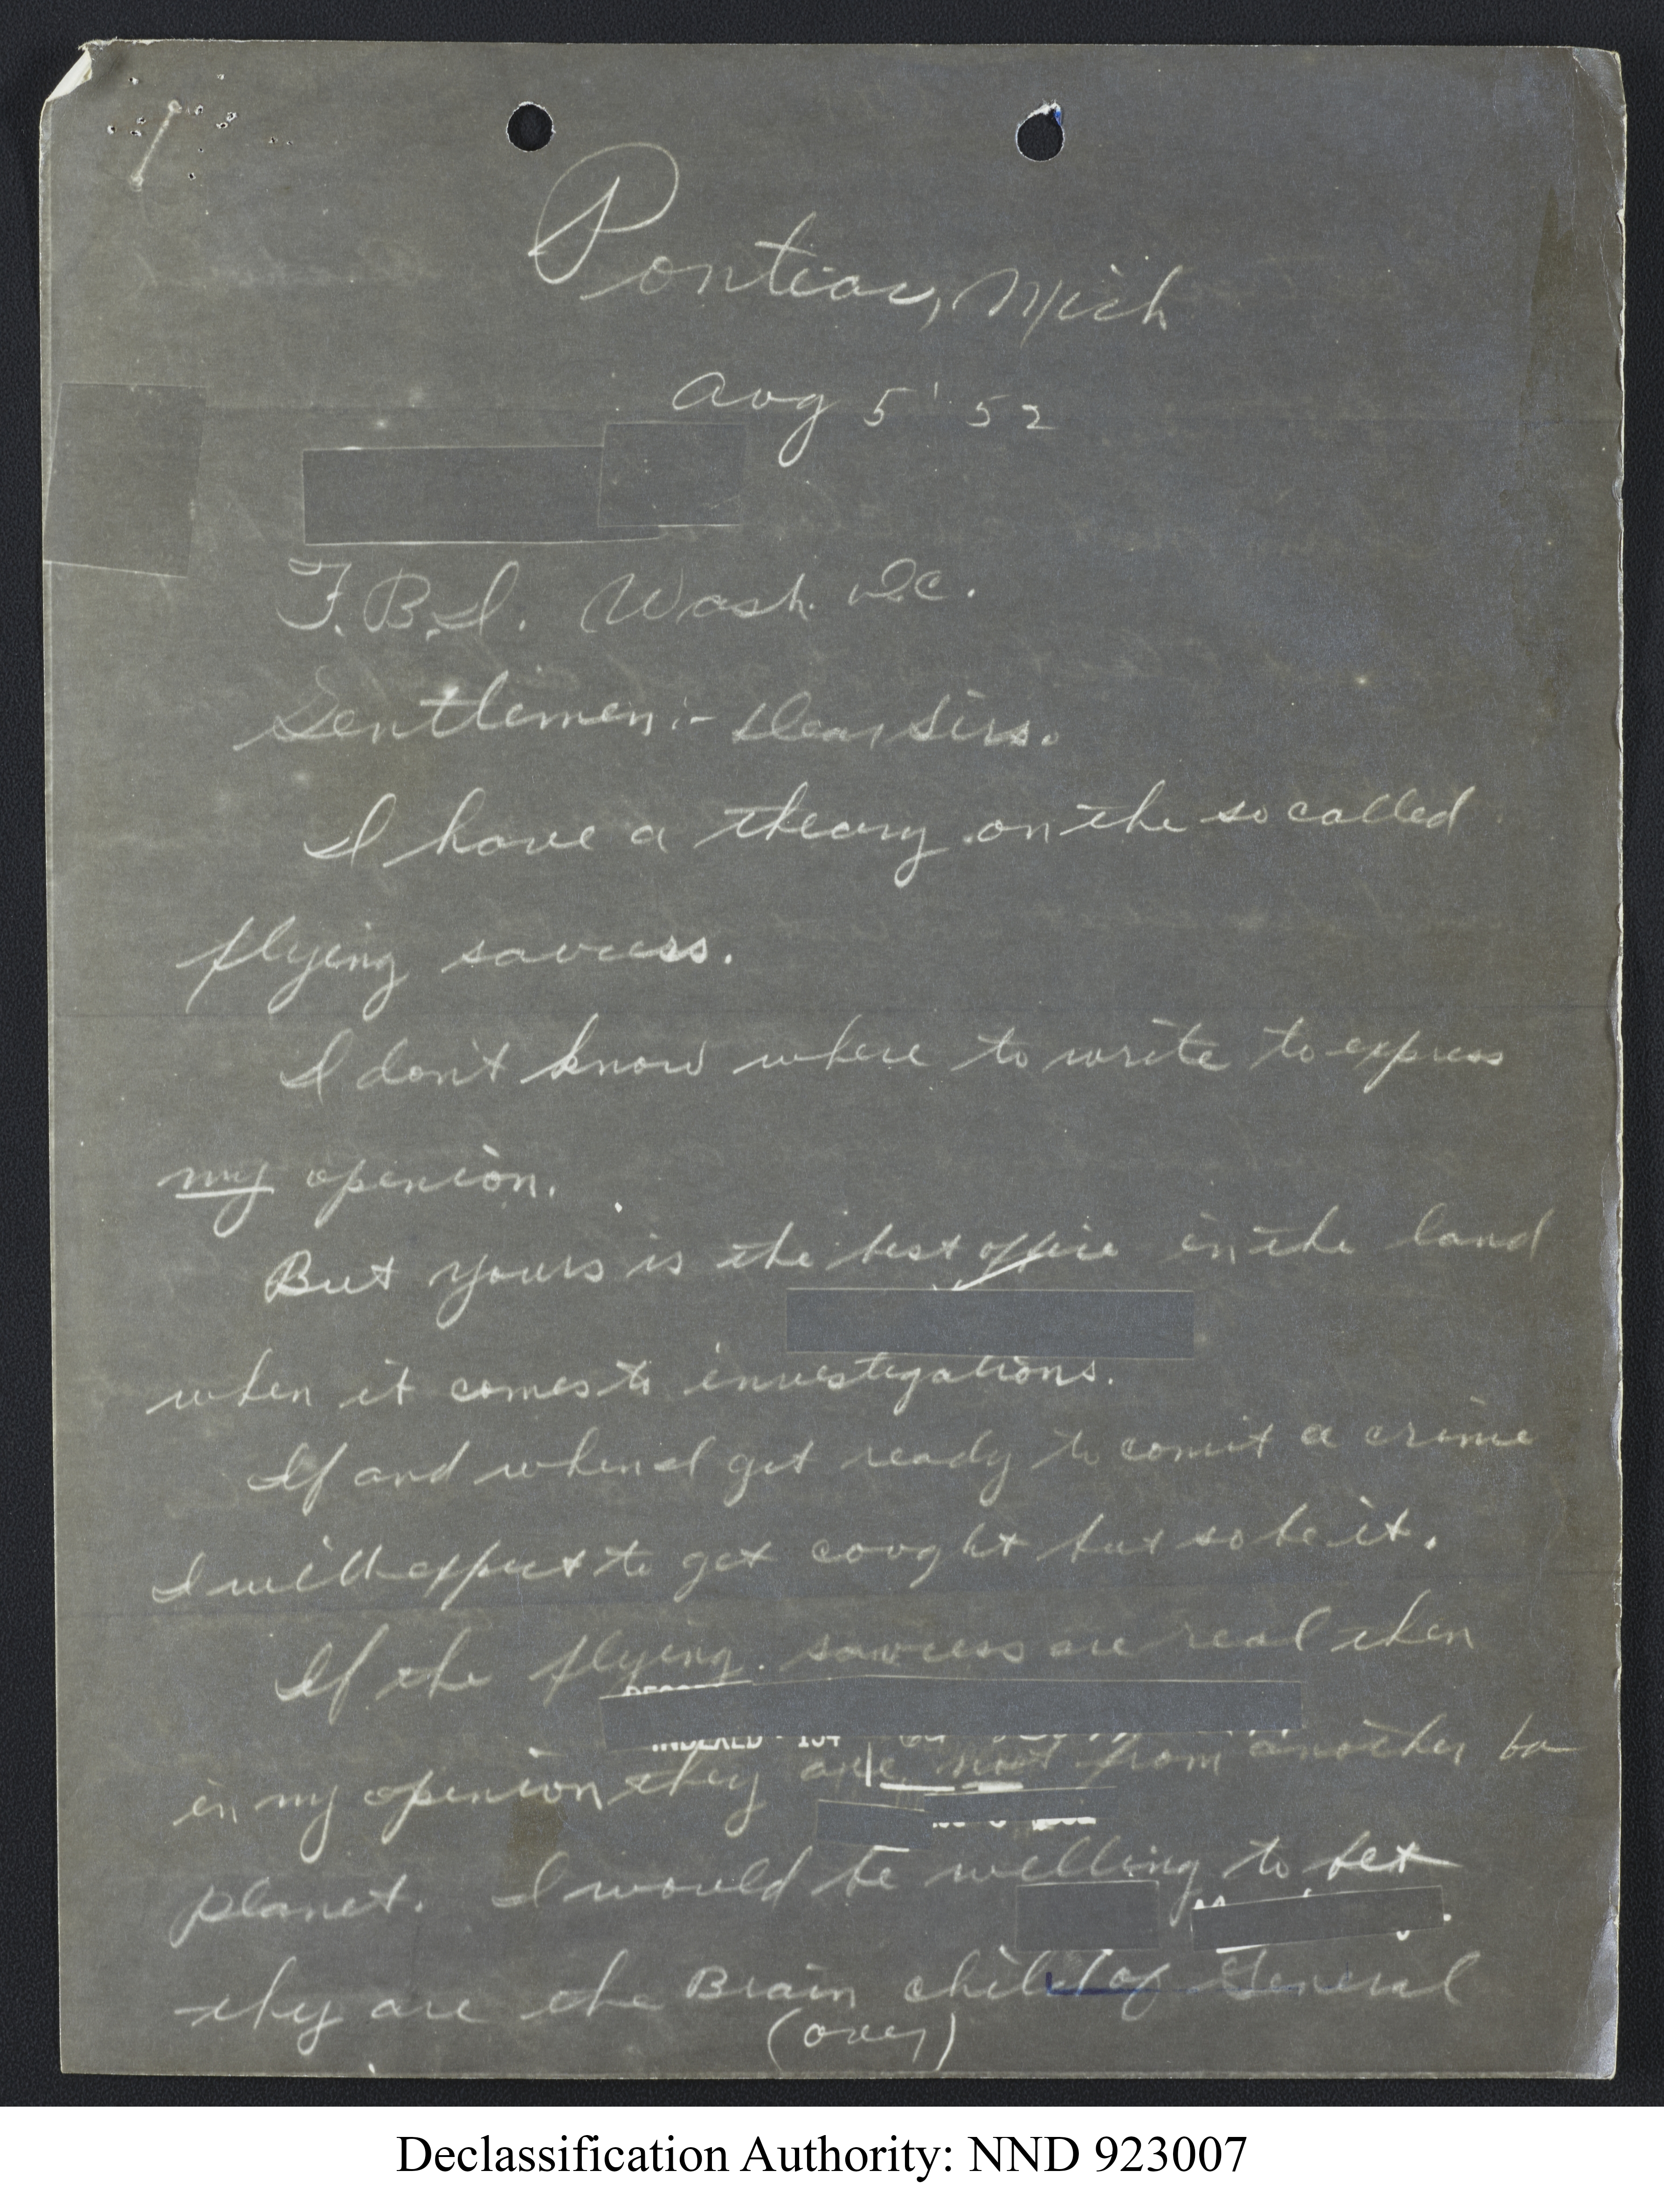 Pontiac, Mich
Aug 5' 52
F.B.I. Wash. DC.
Gentlemen:- Dear Sirs.
I have a theory on the so called
flying saucers.
I don't know where to write to express
my openion.
But yours is the best office in the land
when it comes to investigations.
If and when I get ready to comit a crime
I will expect to get cought but so be it.
If the flying saucers are real then
INDEXED - 134
in my openion they are not from another
planet. I would be willing to bet
they are the Brain child of General
(over)
Declassification Authority: NND 923007